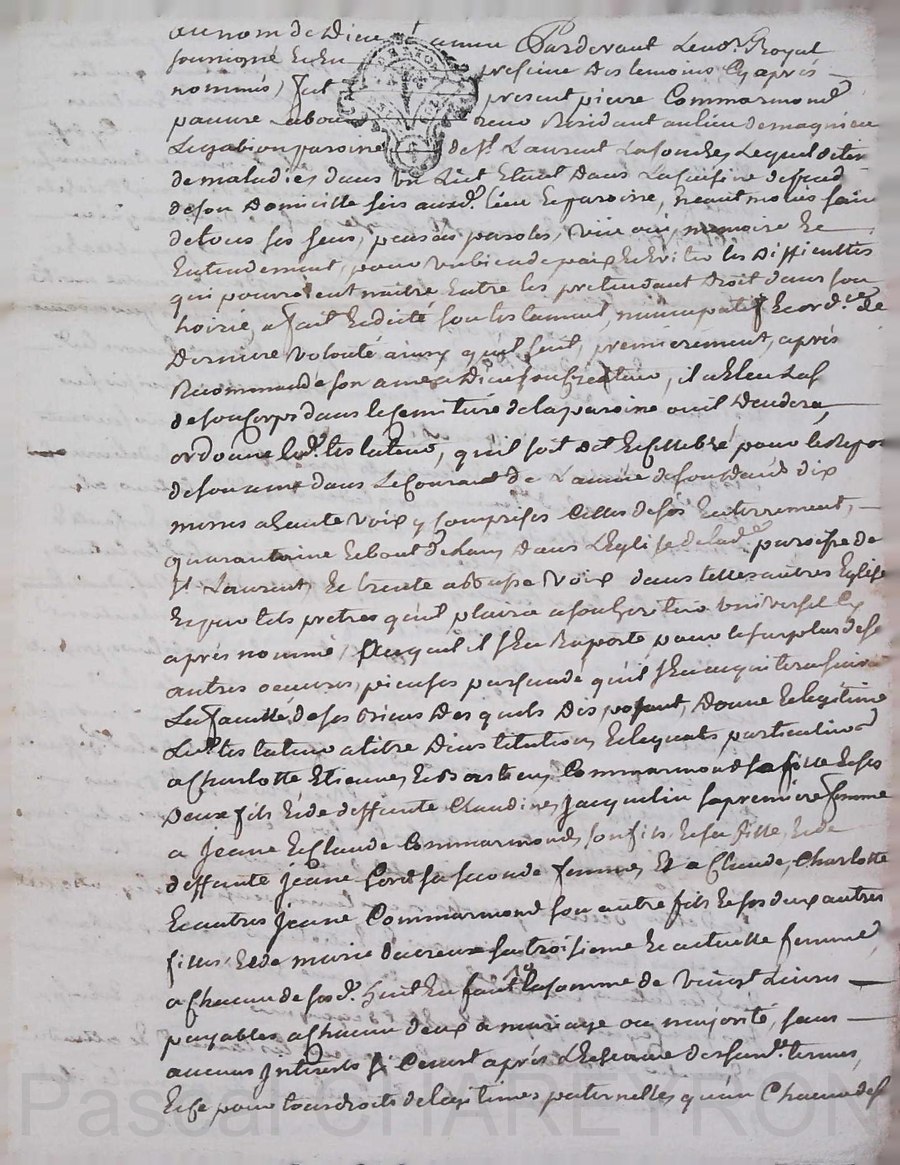 au nom de Dieu amen Pardevant Le no.re Royal
soussigné Et En presence Des temoins Cy apres
nommés, fut present pierre Commarmond
pauvre labou reur Residant au lieu de magnieu
Le gabion paroisse de St. Laurent La Conche Lequel deten
de maladies dans un Lict Etant Dans La Cuisine
de son Domicille sis aud. lieu Et paroisse, Neantmoins sain
de tous ses sens, parole, vue, ouie, memoire Et
Entendement, pour Et Eviter les Difficultes
qui pourroient naitre Entre les pretendant Droit dans son
hoirie, a fait Et dicté son testament, nuncupatif Et ord.ce de
Derniere volonté ainsy qu'il suit, premierement, apres
Recommandé son ame a Dieu son Createur, il a Eleu
de son Corps dans le Semitiere de la paroisse ou il Decedera,
ordonne led. testateur, qu'il soit dit Et Cellebré pour le Repos
de son ame dans Le Courant de L'année de son deces dix
messes a haute voix y Comprises Celles de ses Enterrement,
quarantaine Et bout de L'an, Dans L'Eglise de lad. paroisse de
St. Laurent, Et trente a basse voix dans telles autres Eglise
Et par tels pretres qu'il plaira a son heritier universel Cy
apres nommé, Auquel il s'En Raporte pour le surplus de se
autres oeuvres pieuses persuadé qu'il s'En acquittera suivant
La faculté de ses biens Des quels Disposant, Donne Et legitime
Led. testateur a titre D'institution, Et legats particuliers
a Charlotte Etienne, Et Bastien Commarmond sa fille Et ses
Deux fils Et de deffunte Claudine Jacquelin sa premiere femme
a Jeane Et Claude Commarmond, son fils, Et sa fille, Et de
deffunte Jeane sa seconde femme, Et a Claude, Charlotte
Et autres Jeane Commarmond son autre fils Et ses deux autres
filles, Et de marie ducreux sa troisieme Et actuelle femme,
a Chacun de ses d. huit Enfants la somme de vingt Livres
payables a Chacun deux a mariage ou majorité, sans
aucuns Interets A Cournt apres L'Echeance desd. termes,
Et Ce pour tous droits de legitimes paternelles qu'un Chacun des
Pascal CHAREYRON